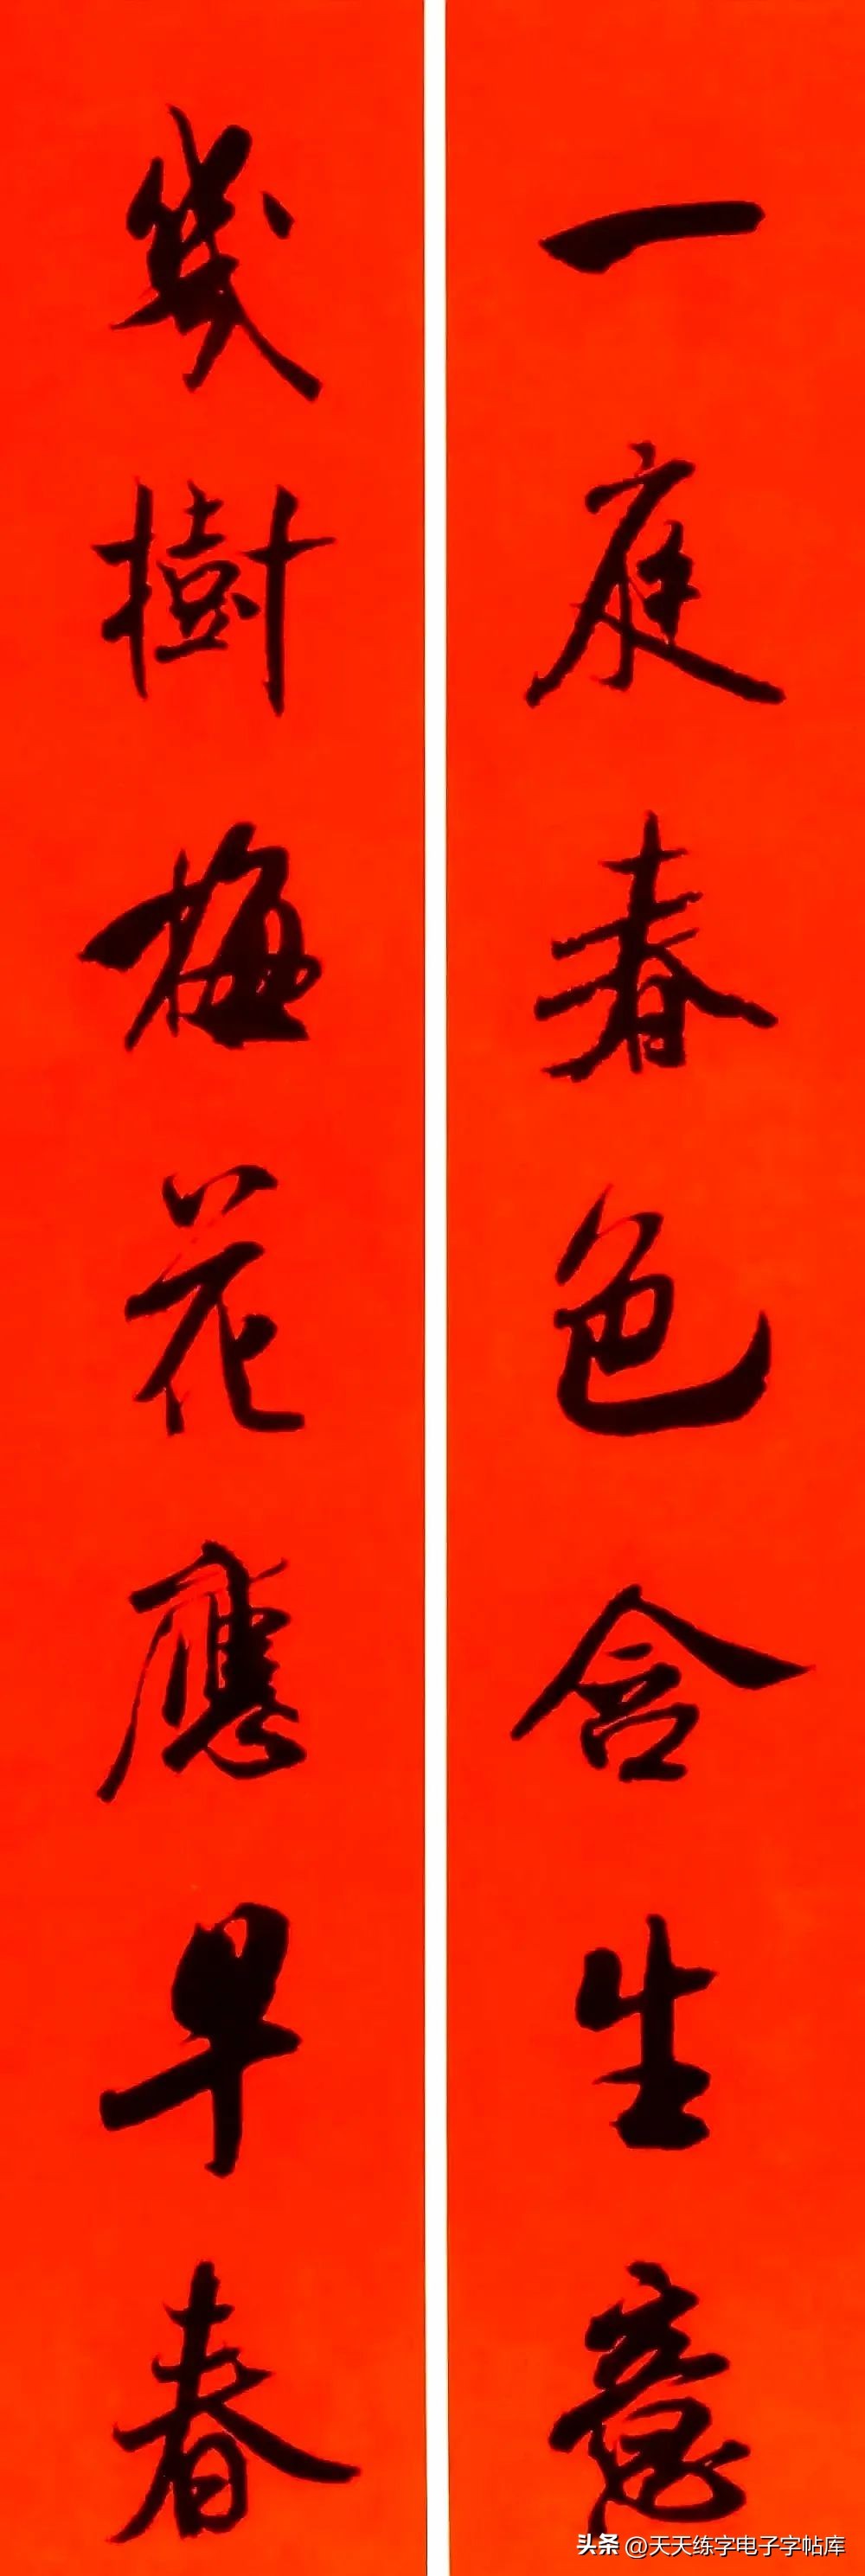 一庭春色含生意
幾樹梅花應早春
头条 @天天练字电子字帖库